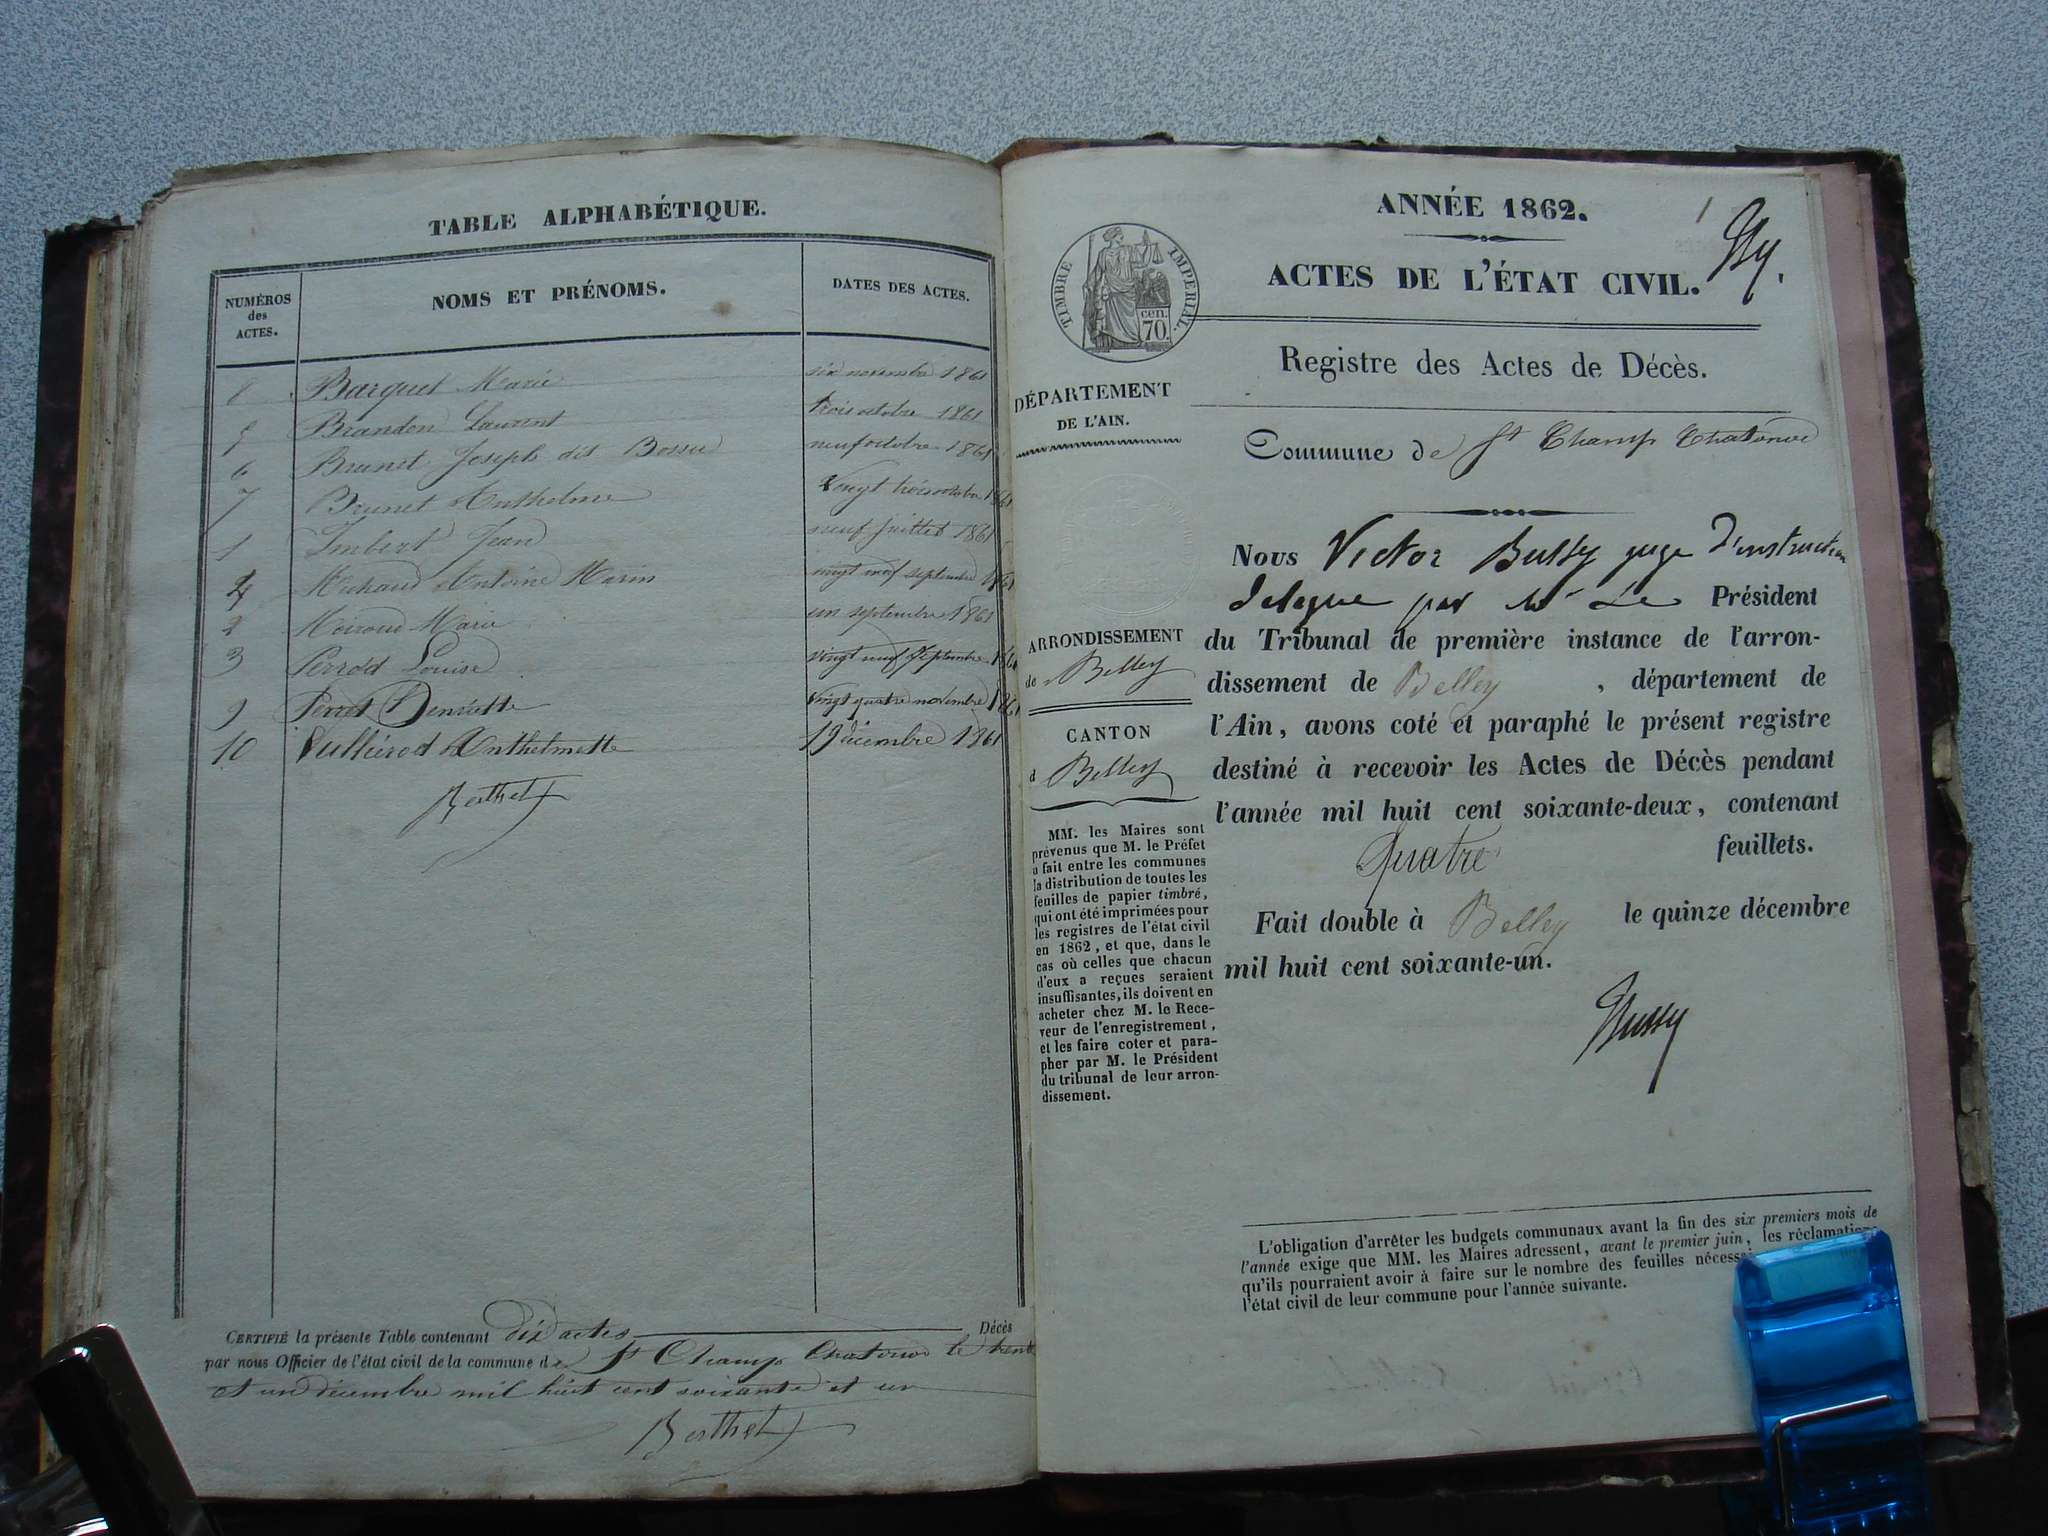 TABLE ALPHABÉTIQUE.
NUMÉROS des ACTES.
NOMS ET PRÉNOMS.
DATES DES ACTES.
8 Barquet Marie six novembre 1861
5 Brandon Laurent trois octobre 1861
6 Brunet Joseph dit Bossu neuf octobre 1861
7 Brunet Anthelme Vingt trois octobre 1861
1 Imbert Jean neuf Juillet 1861
4 Michaud Antoine Marin vingt neuf septembre 1861
2 Moiroud Marie un septembre 1861
3 Perrod Louise vingt neuf Septembre 1861
9 Perret Benoitte Vingt quatre novembre 1861
10 Vulliérod Anthelmette 19 décembre 1861
Berthet
CERTIFIÉ la présente Table contenant dix actes Décès
par nous Officier de l'état civil de la commune de St Champ Chatonod le trente
et un décembre mil huit cent soixante et un
Berthet
ANNÉE 1862.
1
By.
ACTES DE L'ÉTAT CIVIL.
TIMBRE IMPERIAL.
cen.
70.
Registre des Actes de Décès.
DÉPARTEMENT
DE L'AIN.
Commune de St Champ Chatonod
ARRONDISSEMENT
de Belley
CANTON
d Belley
MM. les Maires sont
prévenus que M. le Préfet
a fait entre les communes
la distribution de toutes les
feuilles de papier timbré,
qui ont été imprimées pour
les registres de l'état civil
en 1862, et que, dans le
cas où celles que chacun
d'eux a reçues seraient
insuffisantes, ils doivent en
acheter chez M. le Rece-
veur de l'enregistrement,
et les faire coter et para-
pher par M. le Président
du tribunal de leur arron-
dissement.
Nous Victor Bussy juge d'instruction
delegue par Mr Le Président
du Tribunal de première instance de l'arron-
dissement de Belley, département de
l'Ain, avons coté et paraphé le présent registre
destiné à recevoir les Actes de Décès pendant
l'année mil huit cent soixante-deux, contenant
Quatre feuillets.
Fait double à Belley le quinze décembre
mil huit cent soixante-un.
Bussy
L'obligation d'arrêter les budgets communaux avant la fin des six premiers mois de
l'année exige que MM. les Maires adressent, avant le premier juin, les réclamations
qu'ils pourraient avoir à faire sur le nombre des feuilles
l'état civil de leur commune pour l'année suivante.